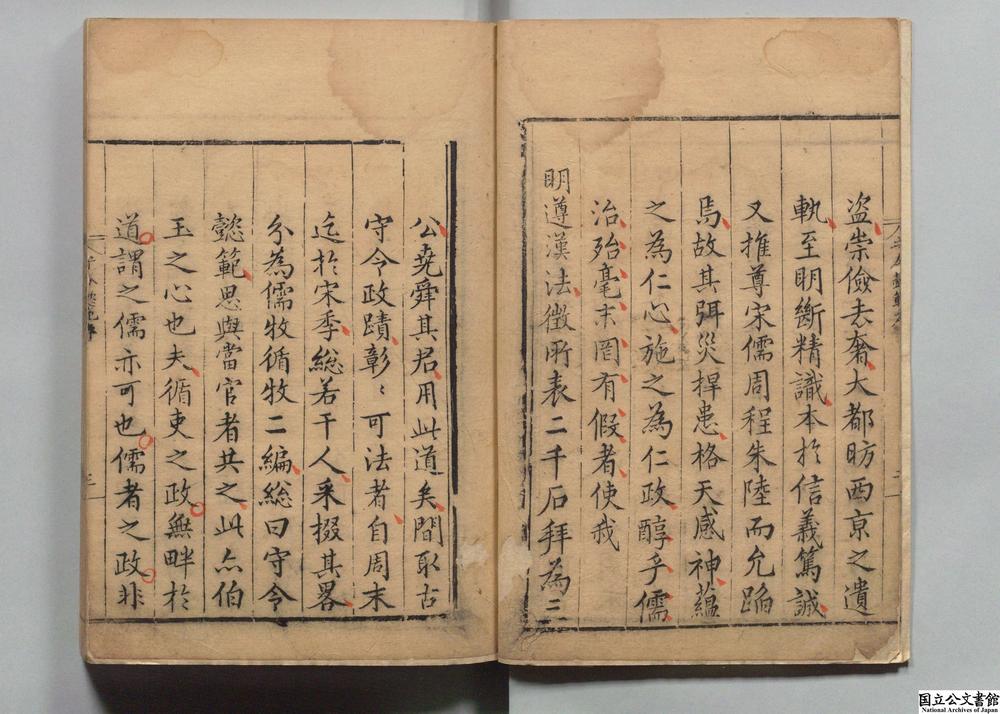 盜崇儉去奢大都昉西京之遺
軌至明斷精識本於信義篤誠
又推尊宋儒周程朱陸而允蹈
焉故其弭災捍患格天感神蘊
之為仁心施之為仁政醇乎儒
治殆毫末罔有假者使我
明遵漢法徵所表二千石拜為三
公堯舜其君用此道矣間取古
守令政蹟彰〻可法者自周末
迄於宋季總若干人采掇其畧
分為儒牧循牧二編總曰守令
懿範思與當官者共之此亦伯
玉之心也夫循吏之政無畔於
道謂之儒亦可也儒者之政非
国立公文書館
National Archives of Japan